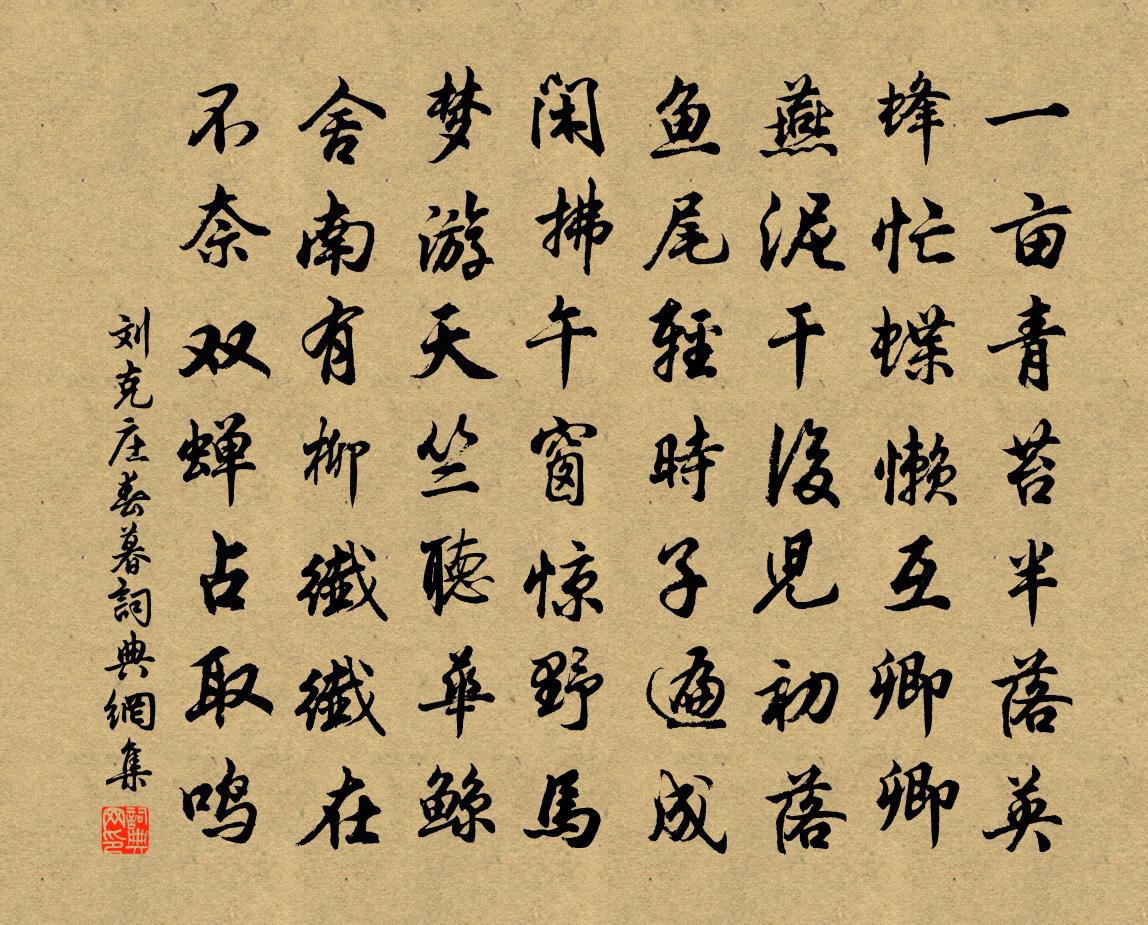 一亩青苔半落英
蜂忙蝶懒互卿卿
燕泥干後児初落
鱼尾轻時子遍成
闲拂午窗惊野馬
梦游天竺聴華鲸
舍南有柳纎纎在
不奈双蝉占取鸣
刘克庄春暮詞典網集
詞典网印